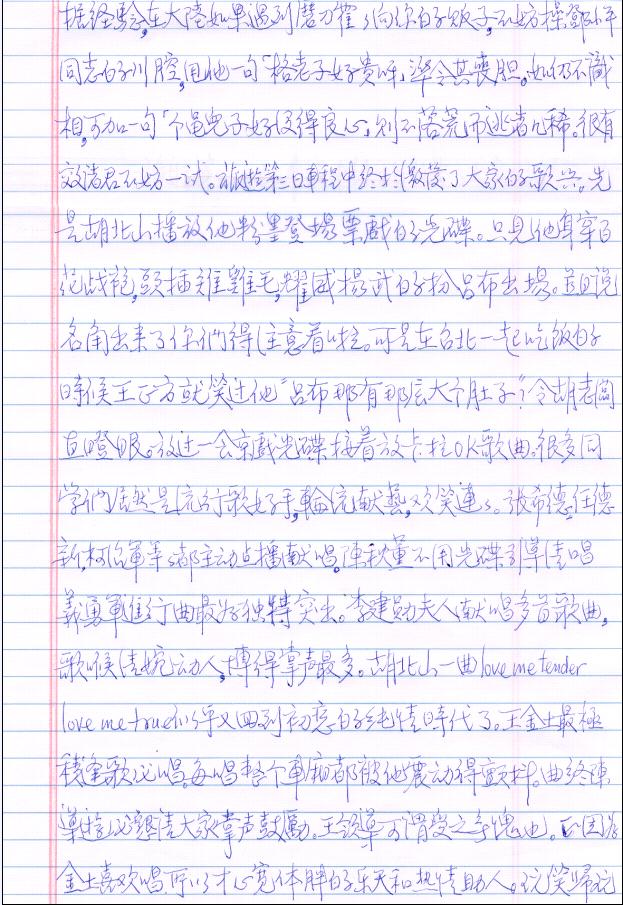 据经驗,在大陸如果遇到磨刀霍霍向你的販子,不妨操鄧小平
同志的川腔,甩他一句「格老子好貴呀」,準令其喪胆。如仍不識
相,可加一句「个龜兒子好没得良心」,則不落荒而逃者几稀。很有
效,諸君不妨一试。旅遊第三日車程中終於激發了大家的歌兴。先
是胡北山播放他粉墨登場票戲的光碟。只見他身穿百
花战袍,頭插雉雞毛,耀威揚武的扮吕布出場。並且说
名角出来了你們得注意着啦。可是在台北一起吃饭的
時候王正方就笑过他"吕布那有那么大个肚子?"令胡老闆
直瞪眼。放过一会京戲光碟接着放卡拉OK歌曲。很多同
学们居然是流行歌好手,輪流献藝,欢笑連連。張希德,任德
新,柯治軍等等都主动点播献唱。陳秋董不用光碟引導清唱
義勇軍進行曲最为独特突出。李建勋夫人献唱多首歌曲,
歌喉清婉动人,博得掌声最多。胡北山一曲love me tender
love me true彷彿又回到初恋的纯情時代了。王金土最極
積逢歌必唱。每唱整个車廂都被他震动得顫抖。曲終陳
導遊必懇請大家掌声鼓勵。王領導可谓受之无愧也。正因为
金土喜欢唱,所以才心宽体胖的乐天和热情助人。玩笑歸玩